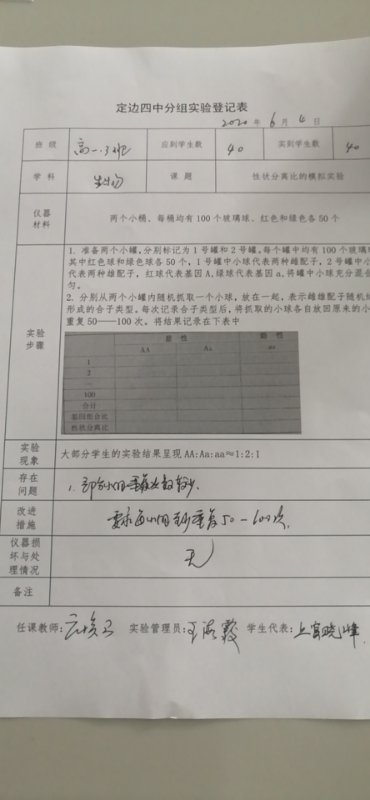 定边四中分组实验登记表
2020 年 6 月 4 日
班 级 高一.3班 应到学生数 40 实到学生数 40
学 科 生物 课 题 性状分离比的模拟实验
仪器
材料
两个小桶、每桶均有100个玻璃球、红色和绿色各50个
实验
步骤
1. 准备两个小罐,分别标记为1号罐和2号罐,每个罐中均有100个玻璃
其中红色球和绿色球各50个,1号罐中小球代表两种雌配子,2号罐中小
代表两种雄配子,红球代表基因A,绿球代表基因a,将罐中小球充分混
匀。
2. 分别从两个小罐内随机抓取一个小球,放在一起,表示雌雄配子随机结
形成的合子类型。每次记录合子类型后,将抓取的小球各自放回原来的小
重复50——100次。将结果记录在下表中
显 性 隐 性
AA Aa aa
1
2
...
100
合计
基因组合比
性状分离比
实验
现象
大部分学生的实验结果呈现AA:Aa:aa≈1:2:1
存在
问题
1. 部分小组重复次数较少.
改进
措施
要求每小组至少重复50-100次.
仪器损
坏与处
理情况
无
备注
任课教师: 实验管理员:王海霞 学生代表:上官晓峰